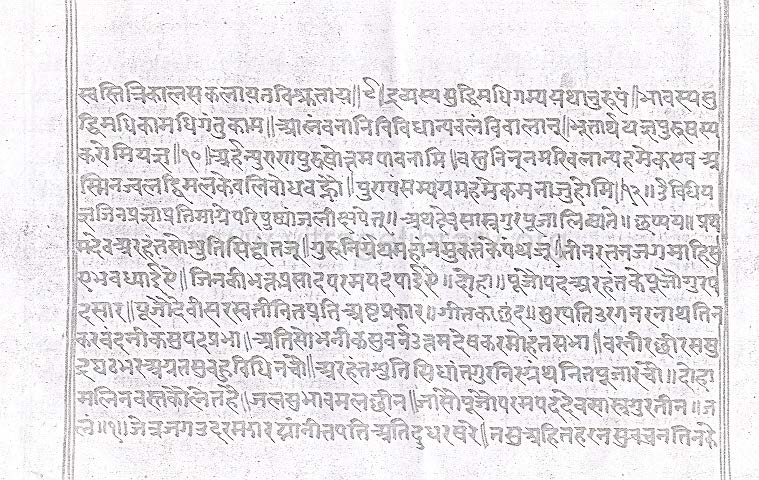 स्वस्तित्रिकालसकलायतविस्तृताय॥९॥द्रव्यस्यशुद्धिमधिगम्ययथानुरूपं॥भावस्यशु
द्धिमधिकामधिगंतुकाम॥आलंवनानिविविधान्यवलंविवालान्॥भूतार्थयज्ञपुरुषस्य
करोमियज्ञं॥१०॥अर्हन्पुराणपुरुषोत्तमपावनामि॥वस्तुनिनूनमखिलान्यहमेकएवअ
स्मिनज्वलद्विमलकेवलिवोधवह्नौ॥पुण्यंसमग्रमहमेकमनाजुहोमि॥१२॥
जिनप्रतिमाग्रेपरिपुष्पांजलीक्षेपेत्॥अथदेवसास्त्रगुरपूजालिख्यते॥छप्पय॥प्रथ
मदेवअरहंतसोश्रुतिसिद्धांतजू॥गुरुनिर्ग्रंथमहांनमुकतकेपंथजू॥तीनरतनजगमाहिसु
येभवध्याईये॥जिनकीभक्तप्रसादपरमपदपाईये॥दोहा॥पूजौपदअरहंतकेपूजौगुरप
दसार॥पूजौदेवीसरस्वतीनितप्रतिअष्टप्रकार॥गीतकाछंद॥सुरपतिउरगनरनाथतिन
करवंदनीकसुपदप्रभा॥अतिसोभनीकसुवर्नउत्तमदेषकरमोहतसभा॥वरनीरछीरसमु
द्रघटभरअग्रतसुवहुविधिनचौ॥अरहंतश्रुतिसिधांतगुरनिरग्रंथनितपूजारचौ॥दोहा
मलिनवस्तकौलेतहै॥जलसुभावमलछीन॥जासौपूजोपरमपददेवसास्त्रगुरतीन॥ज
लं॥१॥जेत्रजगउदरमझारप्रांनीतपतिअतिदुधरषरे॥नसुअहितहरनसुवचनतिनके